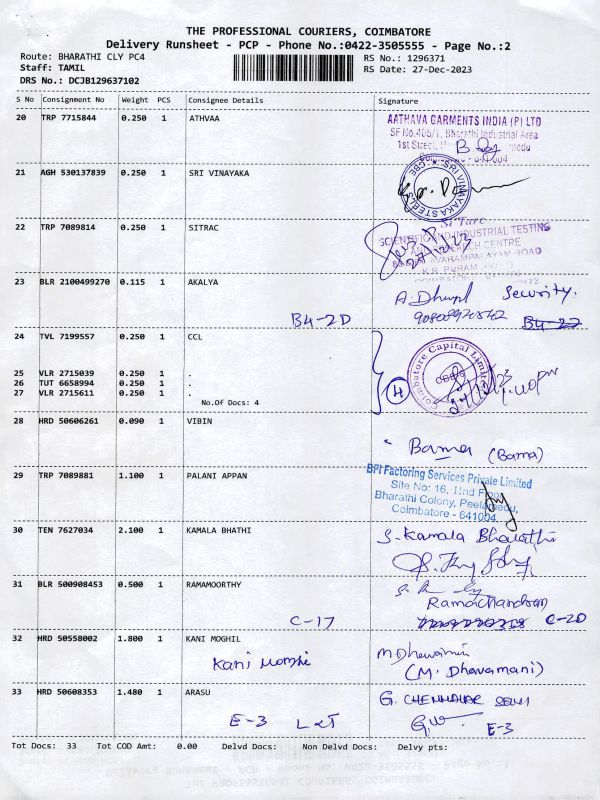 THE PROFESSIONAL COURIERS, COIMBATORE
Delivery Runsheet - PCP - Phone No.:0422-3505555 - Page No.:2
Route: BHARATHI CLY PC4 RS No.: 1296371
Staff: TAMIL RS Date: 27-Dec-2023
DRS No.: DCJB129637102
S No Consignment No Weight PCS Consignee Details Signature
20 TRP 7715844 0.250 1 ATHVAA
AATHAVA GARMENTS INDIA (P) LTD
SF No.405/1, Bharathi Industrial Area
1st Street,
21 AGH 530137839 0.250 1 SRI VINAYAKA
SRI VINAYAKA STEELS
22 TRP 7089814 0.250 1 SITRAC
Si'Tarc
SCIENTIFIC AND INDUSTRIAL TESTING
AND RESEARCH CENTRE
AVARAMPALAYAM ROAD
K.R. PURAM
27/12/23
23 BLR 2100499270 0.115 1 AKALYA
B4-2D
Security.
24 TVL 7199557 0.250 1 CCL
25 VLR 2715039 0.250 1 .
26 TUT 6658994 0.250 1 .
27 VLR 2715611 0.250 1 .
No.Of Docs: 4
4
Coimbatore Capital Limited
28 HRD 50606261 0.090 1 VIBIN
Bama (Bama)
29 TRP 7089881 1.100 1 PALANI APPAN
BFI Factoring Services Private Limited
Site No: 16, IInd Floor,
Bharathi Colony, Peelamedu,
Coimbatore - 641004.
30 TEN 7627034 2.100 1 KAMALA BHATHI
S. Kamala Bharathi
31 BLR 500908453 0.500 1 RAMAMOORTHY
C-17
Ramachandran
C-2D
32 HRD 50558002 1.800 1 KANI MOGHIL
Kani
(M. Dhavamani)
33 HRD 50608353 1.480 1 ARASU
E-3 L&T
G.
E-3
Tot Docs: 33 Tot COD Amt: 0.00 Delvd Docs: Non Delvd Docs: Delvy pts: